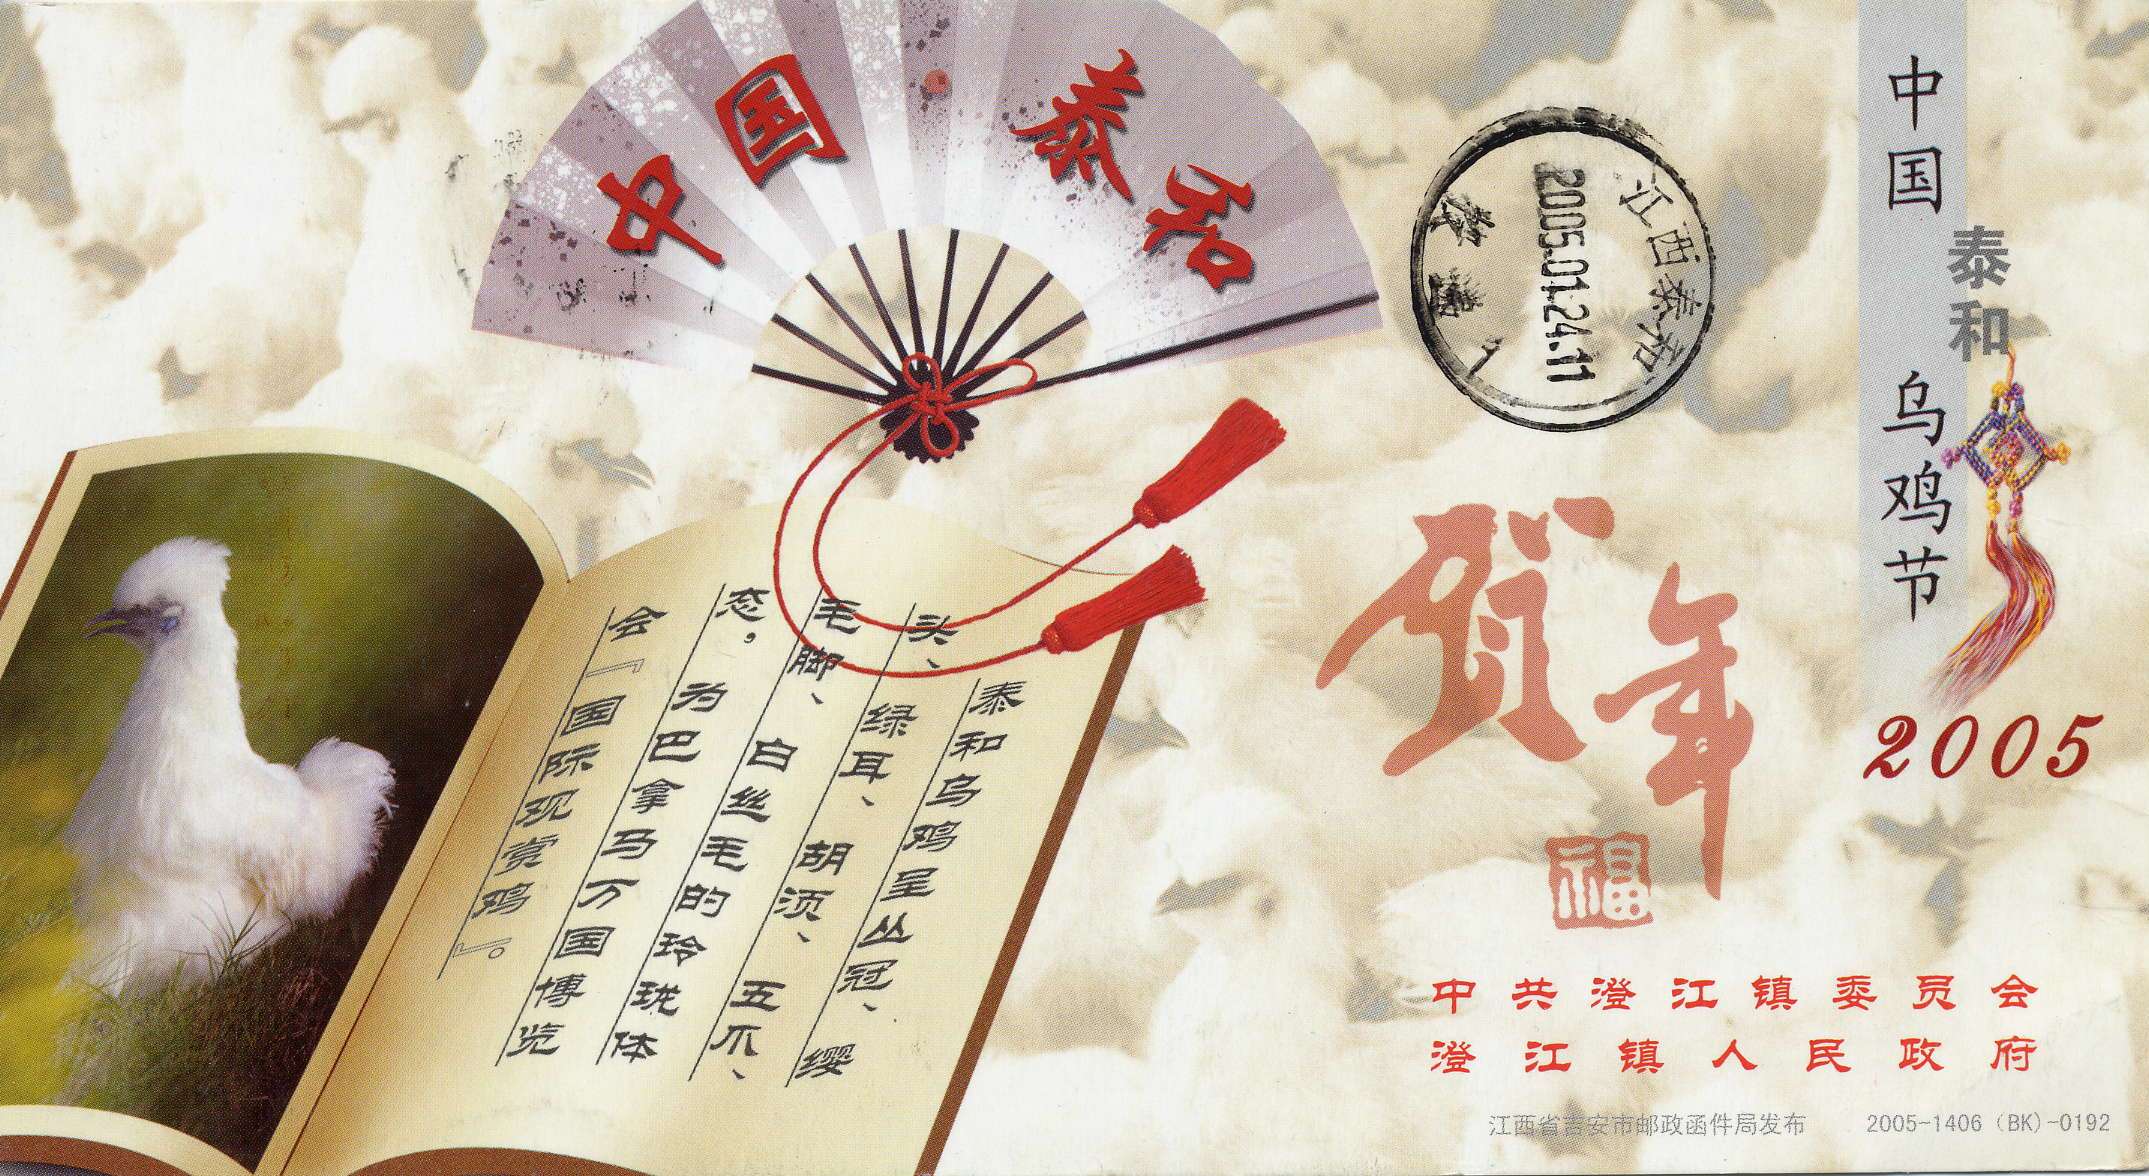 中国 泰和
江西泰和
2005.01.24.11
中国泰和乌鸡节
2005
贺年
福
泰和乌鸡呈丛冠、缨
头、绿耳、胡须、五爪、
毛脚、白丝毛的玲珑体
态，为巴拿马万国博览
会『国际观赏鸡』。
中共澄江镇委员会
澄江镇人民政府
江西省吉安市邮政函件局发布 2005-1406（BK）-0192